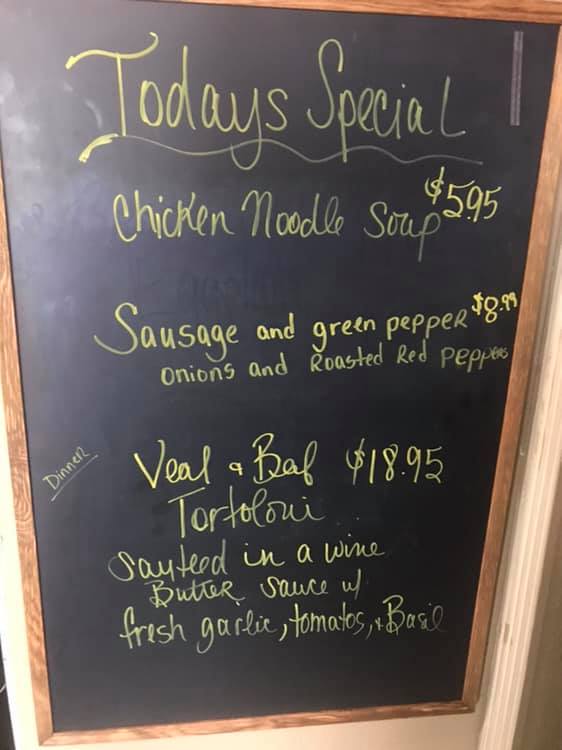 Todays Special
Chicken Noodle Soup $5.95
Sausage and green pepper $8.99
onions and Roasted Red peppers
Dinner
Veal & Beef $18.95
Tortoloni
Sauteed in a wine
Butter sauce w/
fresh garlic, tomatos, & Basil